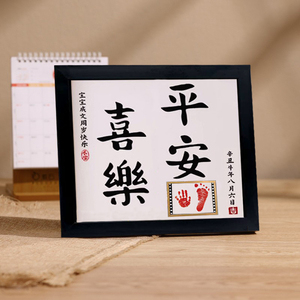 平安
喜樂
辛丑年八月六日
宝宝成文周岁快乐